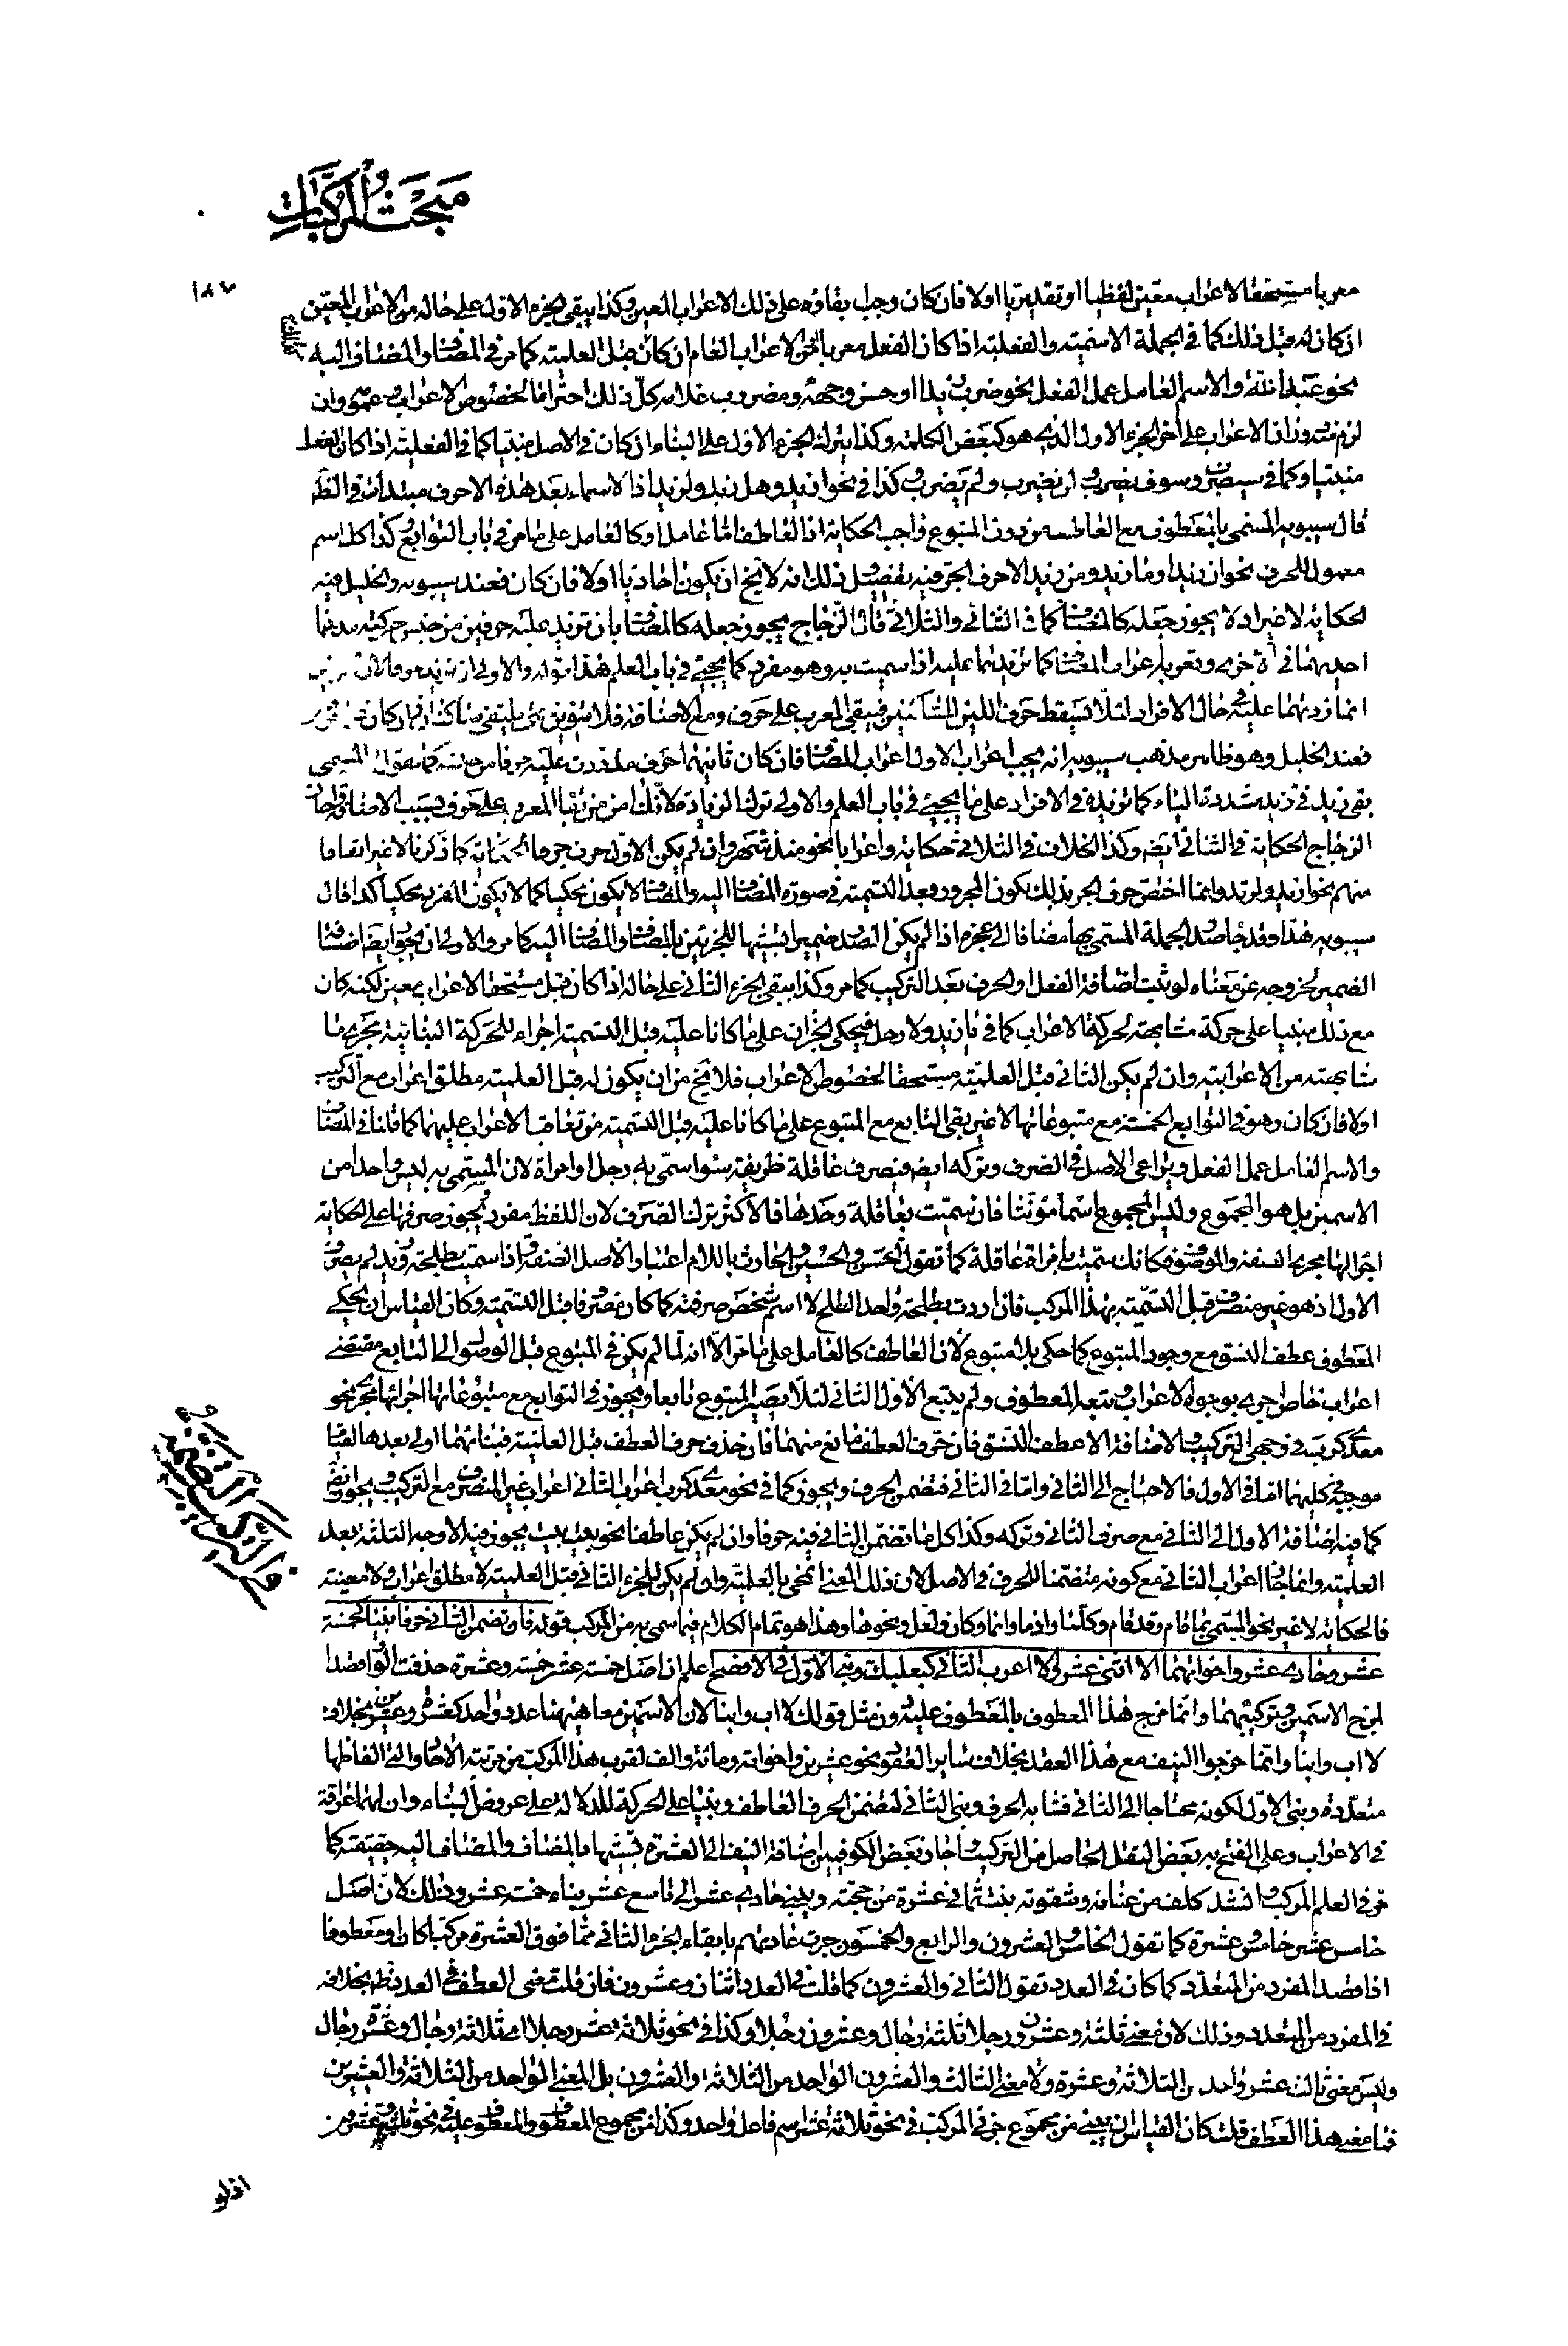 مبحث المركبات
١٨٧
معربا مستحقا لاعراب معين لفظيا او تقديريا اولا فان كان وجب بقاؤه على ذلك الاعراب المعين وكذا يبقى الجزء الاول على حاله من الاعراب المعين
ان كان له قبل ذلك كما فى الجملة الاسمية والفعلية اذا كان الفعل معربا الاعراب العام ان كان قبل العلمية كما مر فى المضاف والمضاف اليه
نحو عبد الله والاسم العامل عمل الفعل نحو ضارب زيدا او حسن وجهه ومضروب غلامه كل ذلك احتراما لخصوص الاعراب وان
لزم منه دوران الاعراب على اخر الجزء الاول الذى هو كبعض الكلمة وكذا يترك الجزء الاول على البناء ان كان فى الاصل مبنيا كما فى الفعلية اذا كان الفعل
مبنيا وكما فى سيضرب وسوف يضرب لن يضرب ولم يضرب وكذا فى نحو ازيد وهل زيد ولزيد اذ الاسماء بعد هذه الاحرف مبتدات فى الظاهر
قال سيبويه المسمى بالمعطوف مع العاطف من دون المتبوع واجب الحكاية اذ العاطف اما عامل او كالعامل على ما مر فى باب التوابع كذا كل اسم
معمول للحرف نحو ان زيدا وما زيد ومن زيد الاحرف الجر فيه تفصيل ذلك انه لا يخ ان يكون احاديا اولا فان كان فعند سيبويه والخليل فيه
الحكاية لا غير اذ لا يجوز جعله كالمضاف كما فى الثنائى والثلاثى قال الزجاج يجوز جعله كالمضاف بان تزيد عليه حرفين من جنس حركته مدغما
احدهما فى الاخرى وتعربه اعراب المضاف كما تزيدهما عليه اذا سميت به وهو مفرد كما يجئ فى باب العلم هذا قوله والاولى ان
انما زدتهما عليه فى حال الافراد لئلا يسقط حرف اللين للساكنين فيبقى المعرب على حرف ومع الاضافة فلا تنوين
فعند الخليل وهو ظاهر مذهب سيبويه انه يجب اعراب الاول اعراب المضاف فان كان ثانيهما حرف مد زدت عليه حرفا من جنسه كما تقول المسمى
بفى زيد فىّ زيد مشددة الياء كما تزيده فى الافراد على ما يجئ فى باب العلم والاولى ترك الزيادة لما قلنا من من بقاء المعرب على حرف بسبب الاضافة واجاز
الزجاج الحكاية فى الثنائى ايض وكذا الخلاف فى الثلاثى حكاية واعرابا نحو منذ شهر وان لم يكن الاول حرف جر فالحكاية كما ذكرنا لا غير اتفاقا
منهم نحو ازيد ولزيد وانما اختص حرف الجر بذلك لكون المجرور بعد التسمية فى صورة المضاف اليه والمضاف لا يكون محكيا كما لا يكون المفرد محكيا كذا قال
سيبويه هذا وقد جاء صدر الجملة المسمى بها مضافا الى عجزها اذا لم يكن الصدر ضميرا تشبيها للجزئين بالمضاف والمضاف اليه كما مر والاولى ان يجوز ايضا اضافة
الضمير لخروجه عن معناه لو ثبت اضافة الفعل او الحرف بعد التركيب كما مر وكذا يبقى الجزء الثانى على حاله اذا كان قبل مستحقا لاعراب معين لكنه كان
مع ذلك مبنيا على حركة مشابهة لحركة الاعراب كما فى يا زيد ولا رجل فيحكى الجزآن على ما كانا عليه قبل التسمية اجراء للحركة البنائية مجرى ما
شابهته من الاعرابية وان لم يكن الثانى قبل العلمية مستحقا لخصوص الاعراب فلا يخ من ان يكون له قبل العلمية مطلق اعراب مع التركيب
اولا فان كان وهو فى التوابع الخمسة مع متبوعاتها لا غير بقى التابع مع المتبوع على ما كانا عليه قبل التسمية من تعاقب الاعراب عليهما كما قلنا فى المضاف
والاسم العامل عمل الفعل ويراعى الاصل فى الصرف وتركه ايض فينصرف عاقلة ظريفة سواء سمى به رجل او امراة لان المسمى به ليس واحدا من
الاسمين بل هو المجموع وليس المجموع اسما مؤنثا فان سميت بعاقلة وحدها فالاكثر ترك الصرف لان اللفظ مفرد ويجوز صرفها على الحكاية
اجرالها مجرى الصفة والموصوف فكانك سميت بامراة عاقلة كما تقول الحسن والحسين والحارث باللام اعتبار الاصل الصفة واذا سميت بطلحة وزيد لم يصرف
الاول اذ هو غير منصرف قبل التسمية بهذا المركب فان اردت بطلحة واحد الطلح لا اسم شخص صرفته كما كان منصرفا قبل التسمية وكان القياس ان يحكى
المعطوف عطف النسق مع وجود المتبوع كما حكى بلا متبوع لان العاطف كالعامل على ما مر الا انه لما لم يكن فى المتبوع قبل الوصول الى التابع مقتضى
اعراب خاص جرى بوجوه الاعراب وتبعه المعطوف ولم يتبع الاول الثانى لئلا يصير المتبوع تابعا ويجوز فى التوابع مع متبوعاتها اجرائها مجرى نحو
معدى كرب فى وجهى التركيب والاضافة الا عطف النسق فان حرف العطف مانع منهما فان حذف حرف العطف قبل العلمية فبناؤهما اولى بعدها لقيام
موجبه فى كليهما اما فى الاول فالاحتياج الى الثانى واما فى الثانى فتضمن الحرف ويجوز كما فى نحو معدى كرب اعراب الثانى اعراب غير المنصرف مع التركيب ويجوز ايض
كما فيه اضافة الاول الى الثانى مع صرف الثانى وتركه وكذا كل ما تضمن الثانى فيه حرفا وان لم يكن عاطفا نحو بيت بيت يجوز فيه الاوجه الثلثة بعد
العلمية وانما جاز اعراب الثانى مع كونه متضمنا للحرف فى الاصل لان ذلك المعنى انمحى بالعلمية وان لم يكن للجزء الثانى قبل العلمية لا مطلق اعراب ولا معينه
فالحكاية لا غير نحو المسمى بما قام وقد قام وكلما واذما وانما وكان ولعل ونحوها وهذا هو تمام الكلام فيما سمى به من المركب قوله فان تضمن الثانى حرفا بنيا كخمسة
عشر وحادى عشر واخواتهما الا اثنى عشر والا اعرب الثانى كبعلبك وبنى الاول فى الافصح اعلم ان اصل خمسة عشر خمسة وعشرة حذفت الواو قصدا
لمزج الاسمين وتركيبهما وانما مزج هذا المعطوف بالمعطوف عليه دون مثل قولك لا اب وابنا لان الاسمين معا ههنا عدد واحد كعشرة وعشرين بخلاف
لا اب وابنا وانما مزجوا النيف مع هذا العقد بخلاف سائر العقود نحو عشرين واخواته ومائة والف لقرب هذا المركب من مرتبة الاحاد التى الفاظها
متعددة وبنى الاول لكونه محتاجا الى الثانى فشابه الحرف وبنى الثانى لتضمن الحرف العاطف وبنيا على الحركة للدلالة على عروض البناء وان لهما عراقة
فى الاعراب وعلى الفتح به بعض الثقل الحاصل من التركيب واجاز بعض الكوفيين اضافة النيف الى العشرة تشبيها بالمضاف والمضاف اليه حقيقة كما
مر فى العلم المركب وانشد كلف من عنائه وشقوته بنت ثمانى عشرة من حجته وبنى حادى عشر الى تاسع عشر بناء خمسة عشر وذلك لان اصل
خامس عشر خامس وعشرة كما تقول الخامس والعشرون والرابع والخمسون جرت عادتهم بابقاء الجزء الثانى مما فوق العشرة مركبا كان او معطوفا
اذا قصد المفرد من المتعدد كما كان فى العدد تقول الثانى والعشرون كما قلت فى العدد اثنان وعشرون فان قلت معنى العطف فى العدد ظ بخلافه
فى المفرد من المتعدد وذلك لان معنى ثلثة وعشرون رجلا ثلثة رجال وعشرون رجلا وكذا فى نحو ثلاثة عشر رجلا اى ثلاثة رجال وعشرة رجال
وليس معنى ثالث عشر واحد من الثلاثة وعشرة ولا معنى الثالث والعشرون الواحد من الثلاثة والعشرون بل المعنى الواحد من الثلاثة والعشرين
فما معنى هذا العطف قلت كان القياس ان يبنى من مجموع جزئى المركب فى نحو ثلاثة عشر اسم فاعل واحد وكذا من مجموع المعطوف والمعطوف عليه فى نحو ثلاثة وعشرين
اذ لو